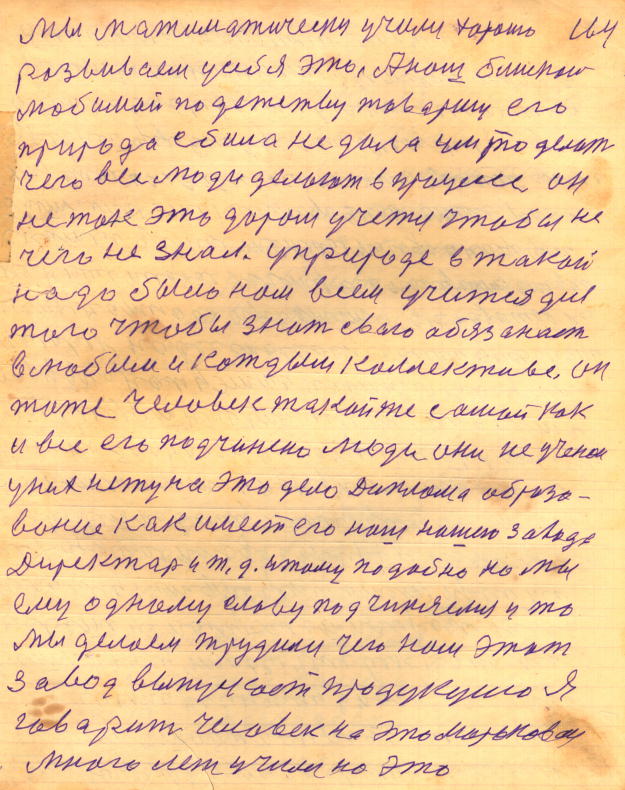 мы матиматически учили хорошо 164
розвиваем у себя это. А наш близкой
любимай по детству товарищ его
природа сбила не дала им то делат
чего все люди делают в процесе он
не так это даром учети чтобы не
чего не знал. у природе в такой
надо было нам всем учится для
того чтобы знат сваго обязаност
в любым и кождым коллективе. он
тоже человек такой же самой как
и все его подчинено люди они не ученои
у них нету на это дело диплома образо-
вание как имеет его наш нашею заводе
директар и т. д. и тому подобно но мы
ему одному слову подчиняемся и то
мы делаем трудили чего нам этот
завод выпускает продукцию Я
говарит человек на это Морковои
много лет учили но это